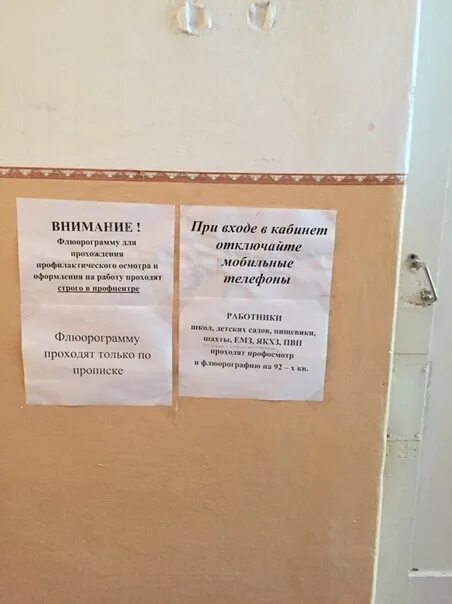 ВНИМАНИЕ !
Флюорограмму для
прохождения
профилактического осмотра и
оформления на работу проходят
строго в профцентре
Флюорограмму
проходят только по
прописке
При входе в кабинет
отключайте
мобильные
телефоны
РАБОТНИКИ
школ, детских садов, пищевики,
шахты, ЕМЗ, ЯКХЗ, ПВП
проходят профосмотр
и флюорографию на 92 – х кв.